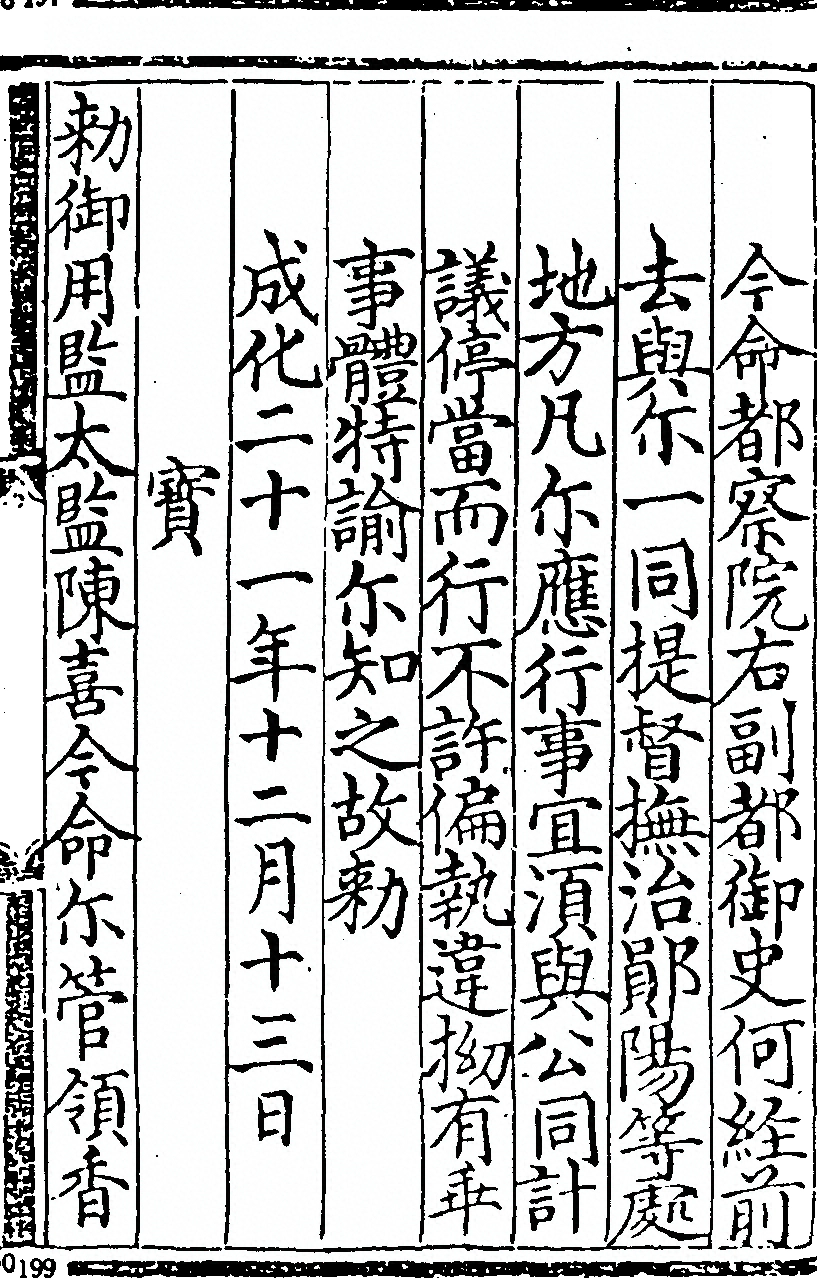 今命都察院右副都御史何経前
去與尓一同提督撫治鄖陽等處
地方凡尓應行事宜湏與公同計
議停當而行不許偏執違拗有乖
事體特諭尓知之故勑
成化二十一年十二月十三日
寶
勑御用監太監陳喜今命尓管領香
199